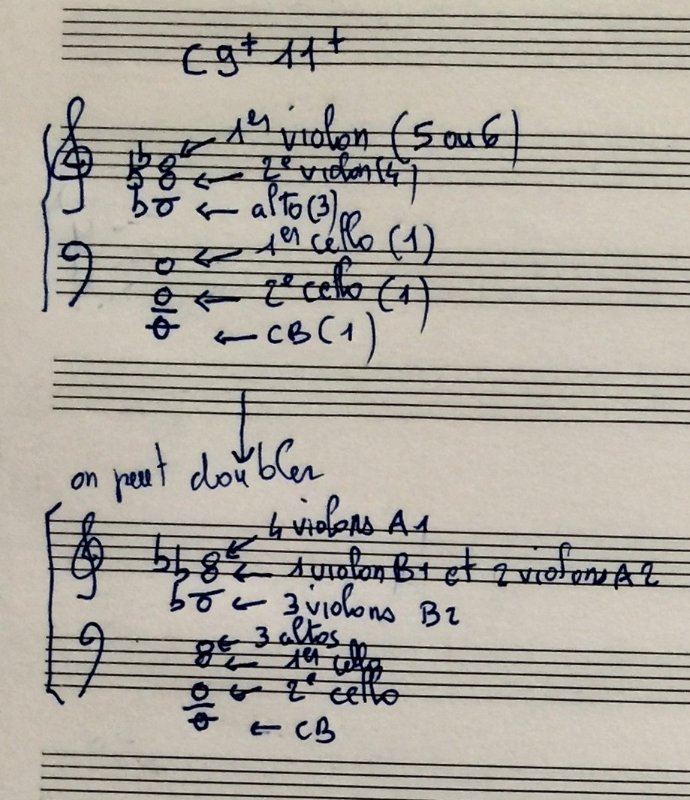 C 9+ 11+
1er violon (5 ou 6)
2e violon (4)
alto (3)
1er cello (1)
2e cello (1)
CB (1)
on peut doubler
4 violons A1
1 violon B1 et 2 violons A2
3 violons B2
3 altos
1er cello
2e cello
CB